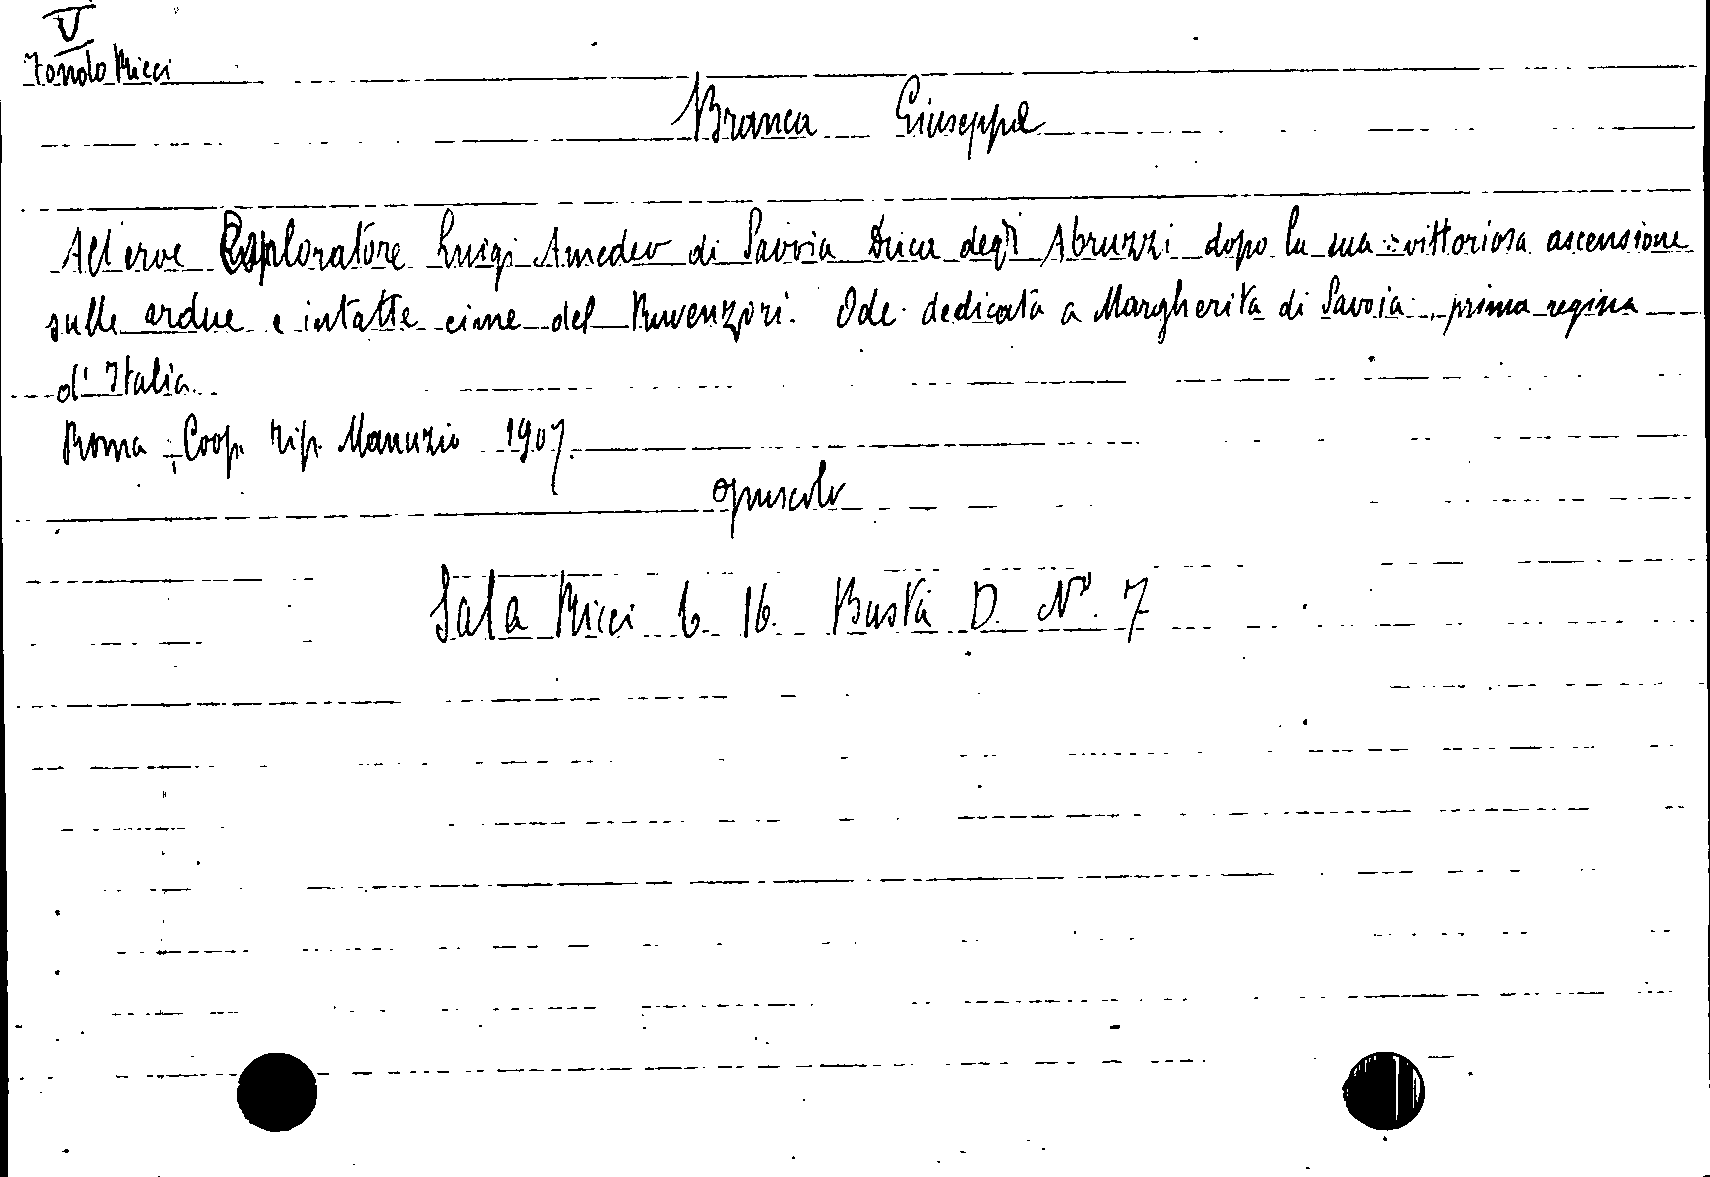 V
Fondo Ricci
Branca Giuseppe
All'eroe Esploratore Luigi Amedeo di Savoia Duca degli Abruzzi dopo la sua vittoriosa ascensione
sulle ardue e intatte cime del Ruwenzori. Ode dedicata a Margherita di Savoia, prima regina
d'Italia.
Roma, Coop. Tip. Manuzio 1907.
opuscolo
Sala Ricci 6 16. Busta D. N° 7